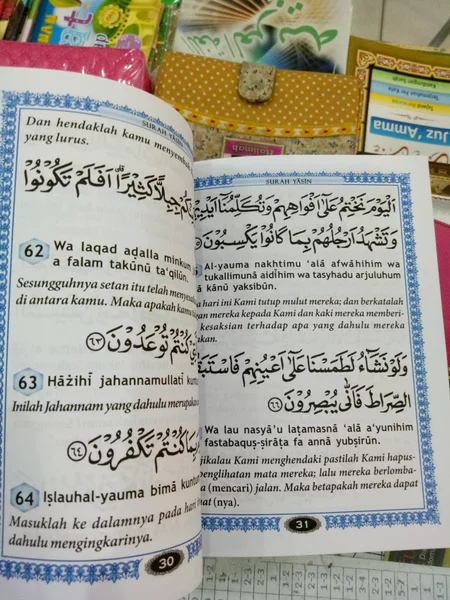 SURAH YĀSĪN
Dan hendaklah kamu menyembah
yang lurus.
جِبِلًّا كَثِيْرًاۗ اَفَلَمْ تَكُوْنُوْا
62 Wa laqad aḍalla minkum
a falam takūnū ta'qilūn.
Sesungguhnya setan itu telah
di antara kamu. Maka apakah kamu
كُنْتُمْ تُوْعَدُوْنَ ٦٣
63 Hāżihī jahannamullatī
Inilah Jahannam yang dahulu
بِمَا كُنْتُمْ تَكْفُرُوْنَ ٦٤
64 Iṣlauhal-yauma bimā kuntum
Masuklah ke dalamnya pada hari
dahulu mengingkarinya.
30
SURAH YĀSĪN
اَلْيَوْمَ نَخْتِمُ عَلٰٓى اَفْوَاهِهِمْ وَتُكَلِّمُنَآ اَيْدِيْهِمْ
وَتَشْهَدُ اَرْجُلُهُمْ بِمَا كَانُوْا يَكْسِبُوْنَ
Al-yauma nakhtimu 'alā afwāhihim wa
tukallimunā aidīhim wa tasyhadu arjuluhum
kānū yaksibūn.
hari ini Kami tutup mulut mereka; dan berkatalah
mereka kepada Kami dan kaki mereka memberi
kesaksian terhadap apa yang dahulu mereka
وَلَوْ نَشَاۤءُ لَطَمَسْنَا عَلٰٓى اَعْيُنِهِمْ فَاسْتَبَقُوا
الصِّرَاطَ فَاَنّٰى يُبْصِرُوْنَ ٦٦
Wa lau nasyā'u laṭamasnā 'alā a'yunihim
fastabaquṣ-ṣirāṭa fa annā yubṣirūn.
jikalau Kami menghendaki pastilah Kami hapus-
penglihatan mata mereka; lalu mereka berlomba-
(mencari) jalan. Maka betapakah mereka dapat
(nya).
31
Halimah
Juz 'Amma